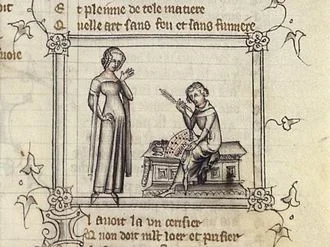 Et pleinne de tele matiere
Quelle art sans feu et sans fumiere
Il avoit la un cerisier
Qu non doit mlt loer et prisier